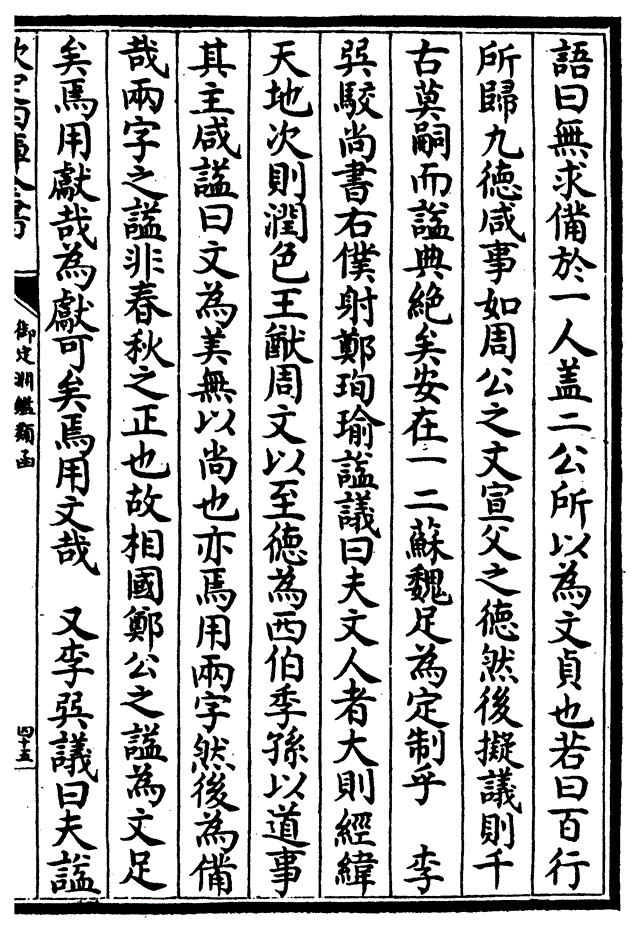 語曰無求備於一人盖二公所以為文貞也若曰百行
所歸九徳咸事如周公之文宣父之徳然後擬議則千
古莫嗣而諡典絶矣安在一二蘇魏足為定制乎　李
巽駮尚書右僕射鄭珣瑜諡議曰夫文人者大則經緯
天地次則潤色王猷周文以至徳為西伯季孫以道事
其主咸諡曰文為美無以尚也亦焉用兩字然後為備
哉兩字之諡非春秋之正也故相國鄭公之諡為文足
矣焉用獻哉為獻可矣焉用文哉　又李巽議曰夫諡
御定淵鑑類函
四十五